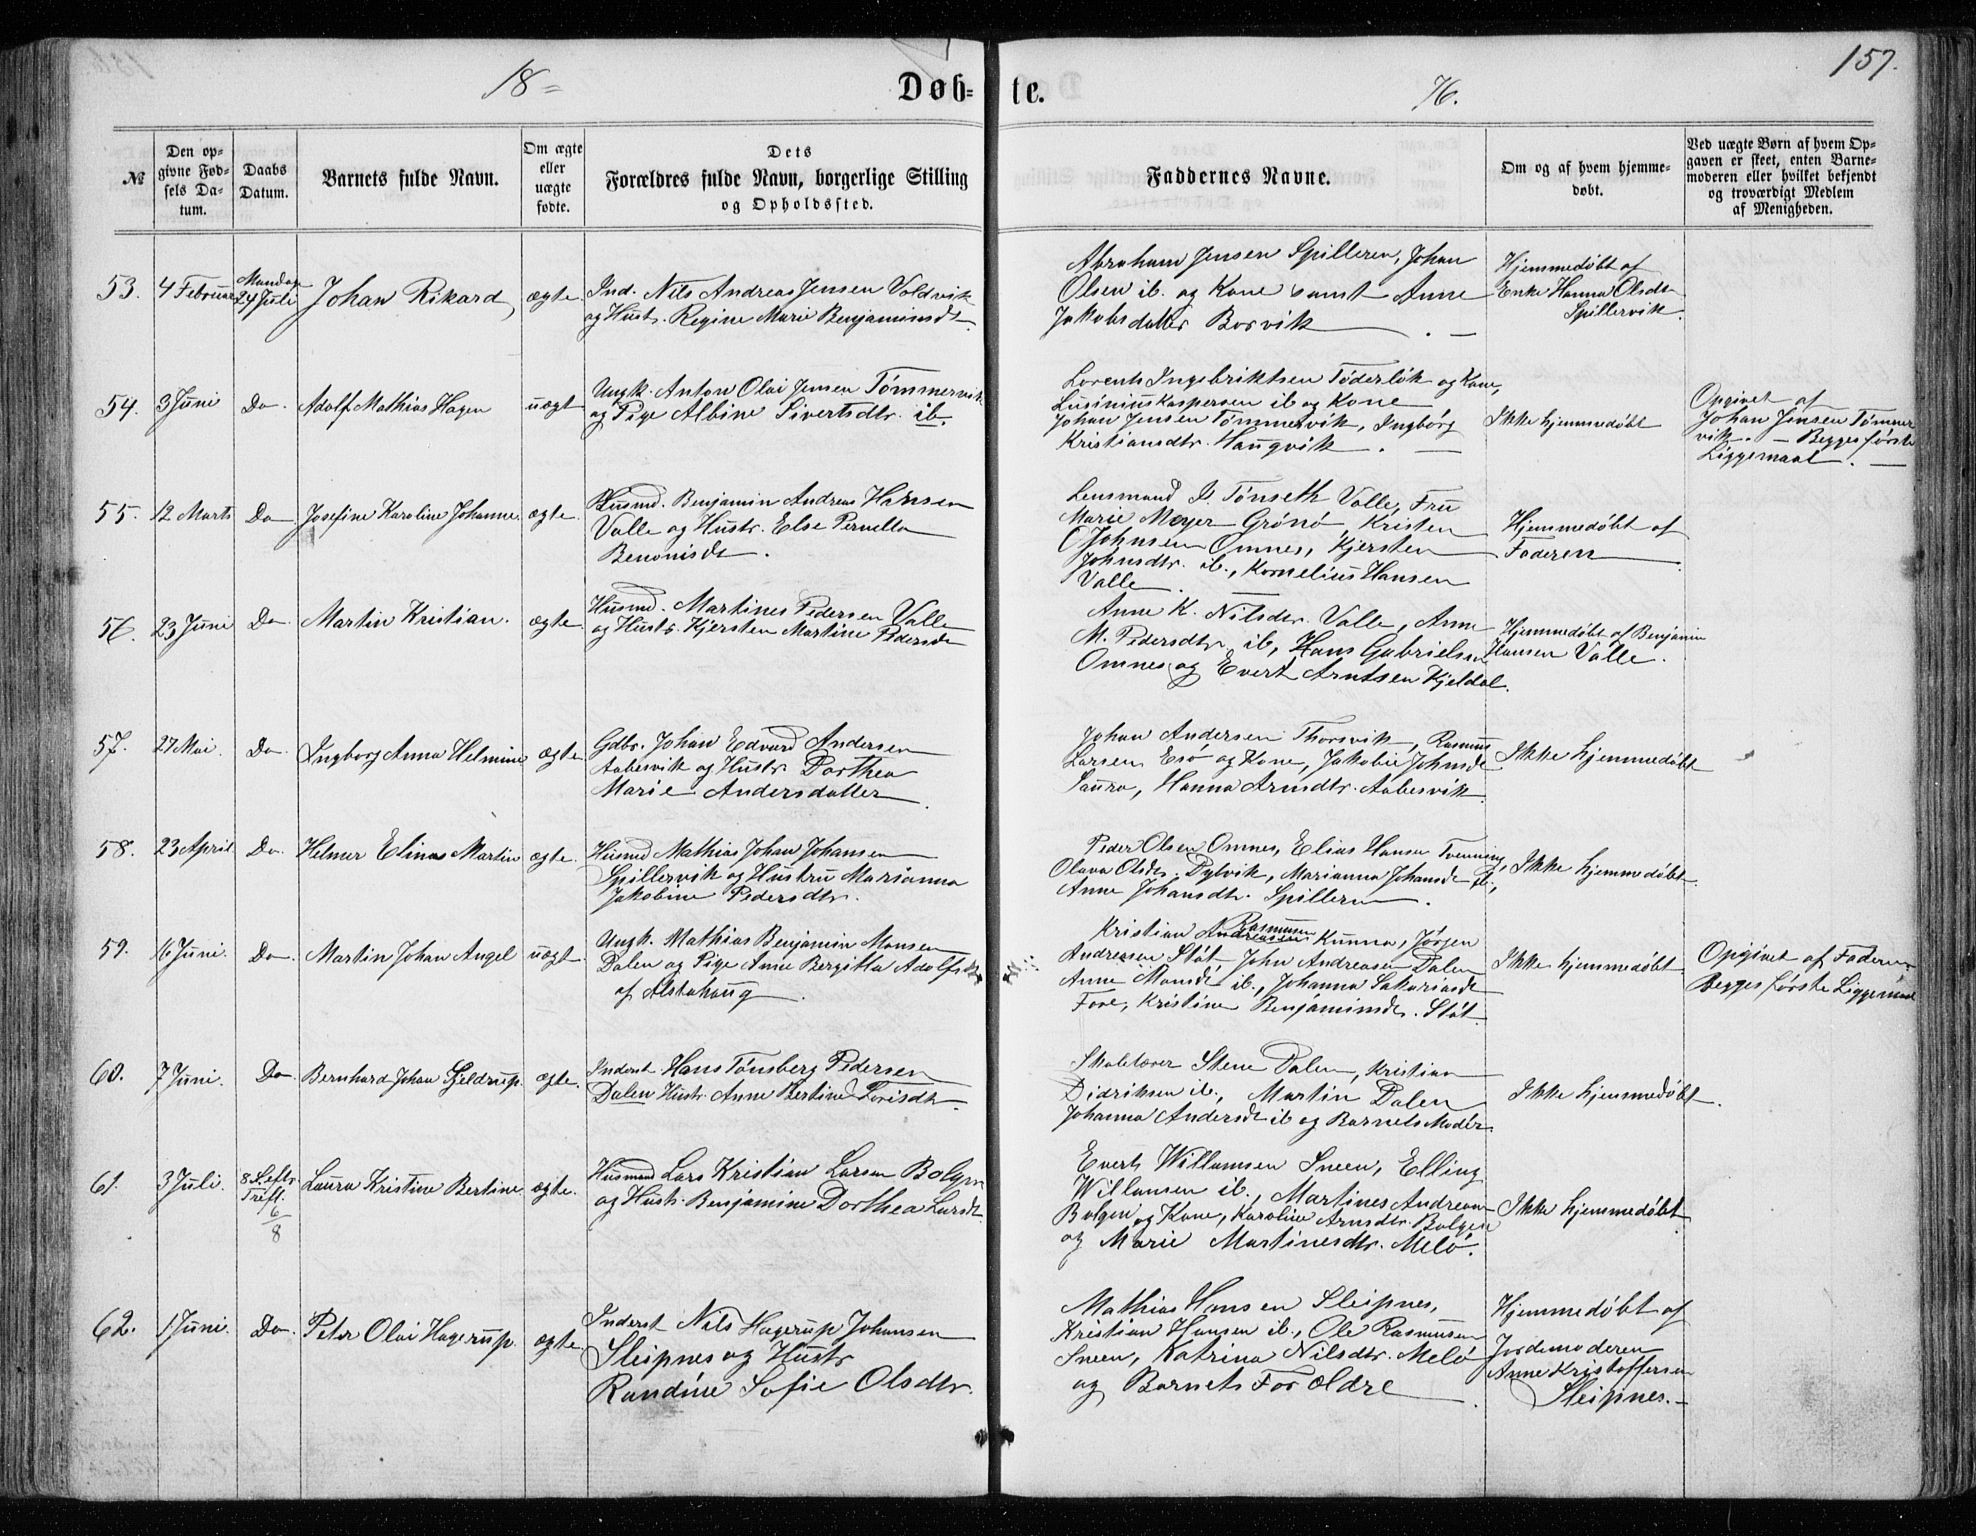 157.
18 =
Døb=
te.
76.
№
Den op=
givne Fød=
sels Da=
tum.
Daabs
Datum.
Barnets fulde Navn.
Om ægte
eller
uægte
fødte.
Dets
Forældres fulde Navn, borgerlige Stilling
og Opholdssted.
Faddernes Navne.
Om og af hvem hjemme=
døbt.
Ved uægte Børn af hvem Op=
gaven er skeet, enten Barne=
moderen eller hvilket bekjendt
og troværdigt Medlem
af Menigheden.
53. 4 Februar
Mandag
24 Juli
Johan Rikard
ægte.
Ind. Nils Andreas Jensen Valdvik
og Hustr. Regine Marie Benjaminsdt.
Abraham Jensen Spilleren, Johan
Olsen ib. og Kone samt Anne
Jakobsdatter Borvik
Hjemmedøbt af
Enke Hanna Olsdtr
Spillervik.
54. 3 Juni Do. Adolf Mathias Hagen uægt
Ungk. Anton Olai Jensen Tømmervik
og Pige Albine Sivertsdtr. ib.
Lorents Ingebriktsen Tøderløk og Kone,
Lusinius Kaspersen ib og Kone
Johan Jensen Tømmervik, Ingbørg
Kristiansdtr. Haugvik.
Ikke hjemmedøbt
Opgivet af
Johan Jensen Tømmer
vik. — Begges første
Liggemaal.
55. 12 Marts Do Josefine Karoline Johanne. ægte.
Husmd. Benjamin Andreas Hansen
Valle og Hustr. Else Pernella
Benonisdt.
Lensmand Tønseth Valle, Fru
Marie Meyer Grønø, Kristen
Johnsen Omnes, Kjersten
Johnsdtr. ib., Kornelius Hansen
Valle.
Hjemmedøbt af
Faderen
56. 23 Juni Do. Martin Kristian. ægte.
Husmd. Martines Pedersen Valle
og Hustr. Kjersten Martine Pedersdt
Anne K. Nilsdtr. Valle, Anne
M. Pedersdtr. ib, Hans Gabrielsen
Omnes og Evert Arntsen Kjeldal.
Hjemmedøbt af Benjamin
Hansen Valle.
57. 27 Mai. Do. Ingborg Anna Helmine ægte
Gdbr. Johan Edvard Andersen
Aabesvik og Hustr Dorthea
Marie Andersdatter
Johan Andersen Thorsvik, Rasmus
Larsen Esø og Kone, Jakobie Johnsdt
Saura, Hanna Arndtr. Aabesvik.
Ikke hjemmedøbt
58. 23 April Do. Helmer Elinas Martin ægte.
Husmd Mathias Johan Johansen
Spillervik og Hustru Marianna
Jakobine Pedersdtr.
Peder Olsen Omnes, Elias Hansen Tvenning,
Olava Olsdtr. Dylvik, Marianna Johansdt ib.,
Anne Johansdtr. Spilleren.
Ikke hjemmedøbt.
59. 16 Juni. Do Martin Johan Angel uægt.
Ungk. Mathias Benjamin Monsen
Dalen og Pige Anne Bergitta Adolfsdtr
af Alstahaug.
Rasmussen
Kristian Andreassen Kunna, Jørgen
Andreasen Støt, John Andreasen Dalen
Anne Monsdt ib., Johanna Sakariasdt
Fore, Kristine Benjaminsdtr. Støt.
Ikke hjemmedøbt
Opgivet af Faderen
Begges første Liggemaal
60. 7 Juni. Do Bernhard Johan Sjeldrup. ægte.
Inderst Hans Tønsberg Pedersen
Dalen Hustr. Anne Bertine Torisdtr.
Skolelærer Stene Dalen, Kristian
Didriksen ib., Martin Dalen
Johanna Andersdt ib og Barnets Moder.
Ikke hjemmedøbt.
61. 3 Juli.
8 S. eftr.
Trefl.
6/8
Laura Kristine Bertine. ægte.
Husmand Lars Kristian Larsen Bolgen
og Hustr. Benjamine Dorthea Larsdt
Evert Willumsen Sneen, Elling
Willumsen ib., Martines Andreasen
Bolgen og Kone, Karoline Arndtr. Bolgen
og Marie Martinesdtr. Melø.
Ikke hjemmedøbt
62. 1 Juni. Do. Peter Olai Hagerup. ægte.
Inderst Nils Hagerup Johansen
Sleipnes og Hustr
Randine Sofie Olsdtr.
Mathias Hansen Sleipnes,
Kristian Hansen ib., Ole Rasmusen
Sneen, Katrina Nilsdtr. Melø
og Barnets Forældre
Hjemmedøbt af
Jordemoderen
Anne Kristoffersen
Sleipnes.